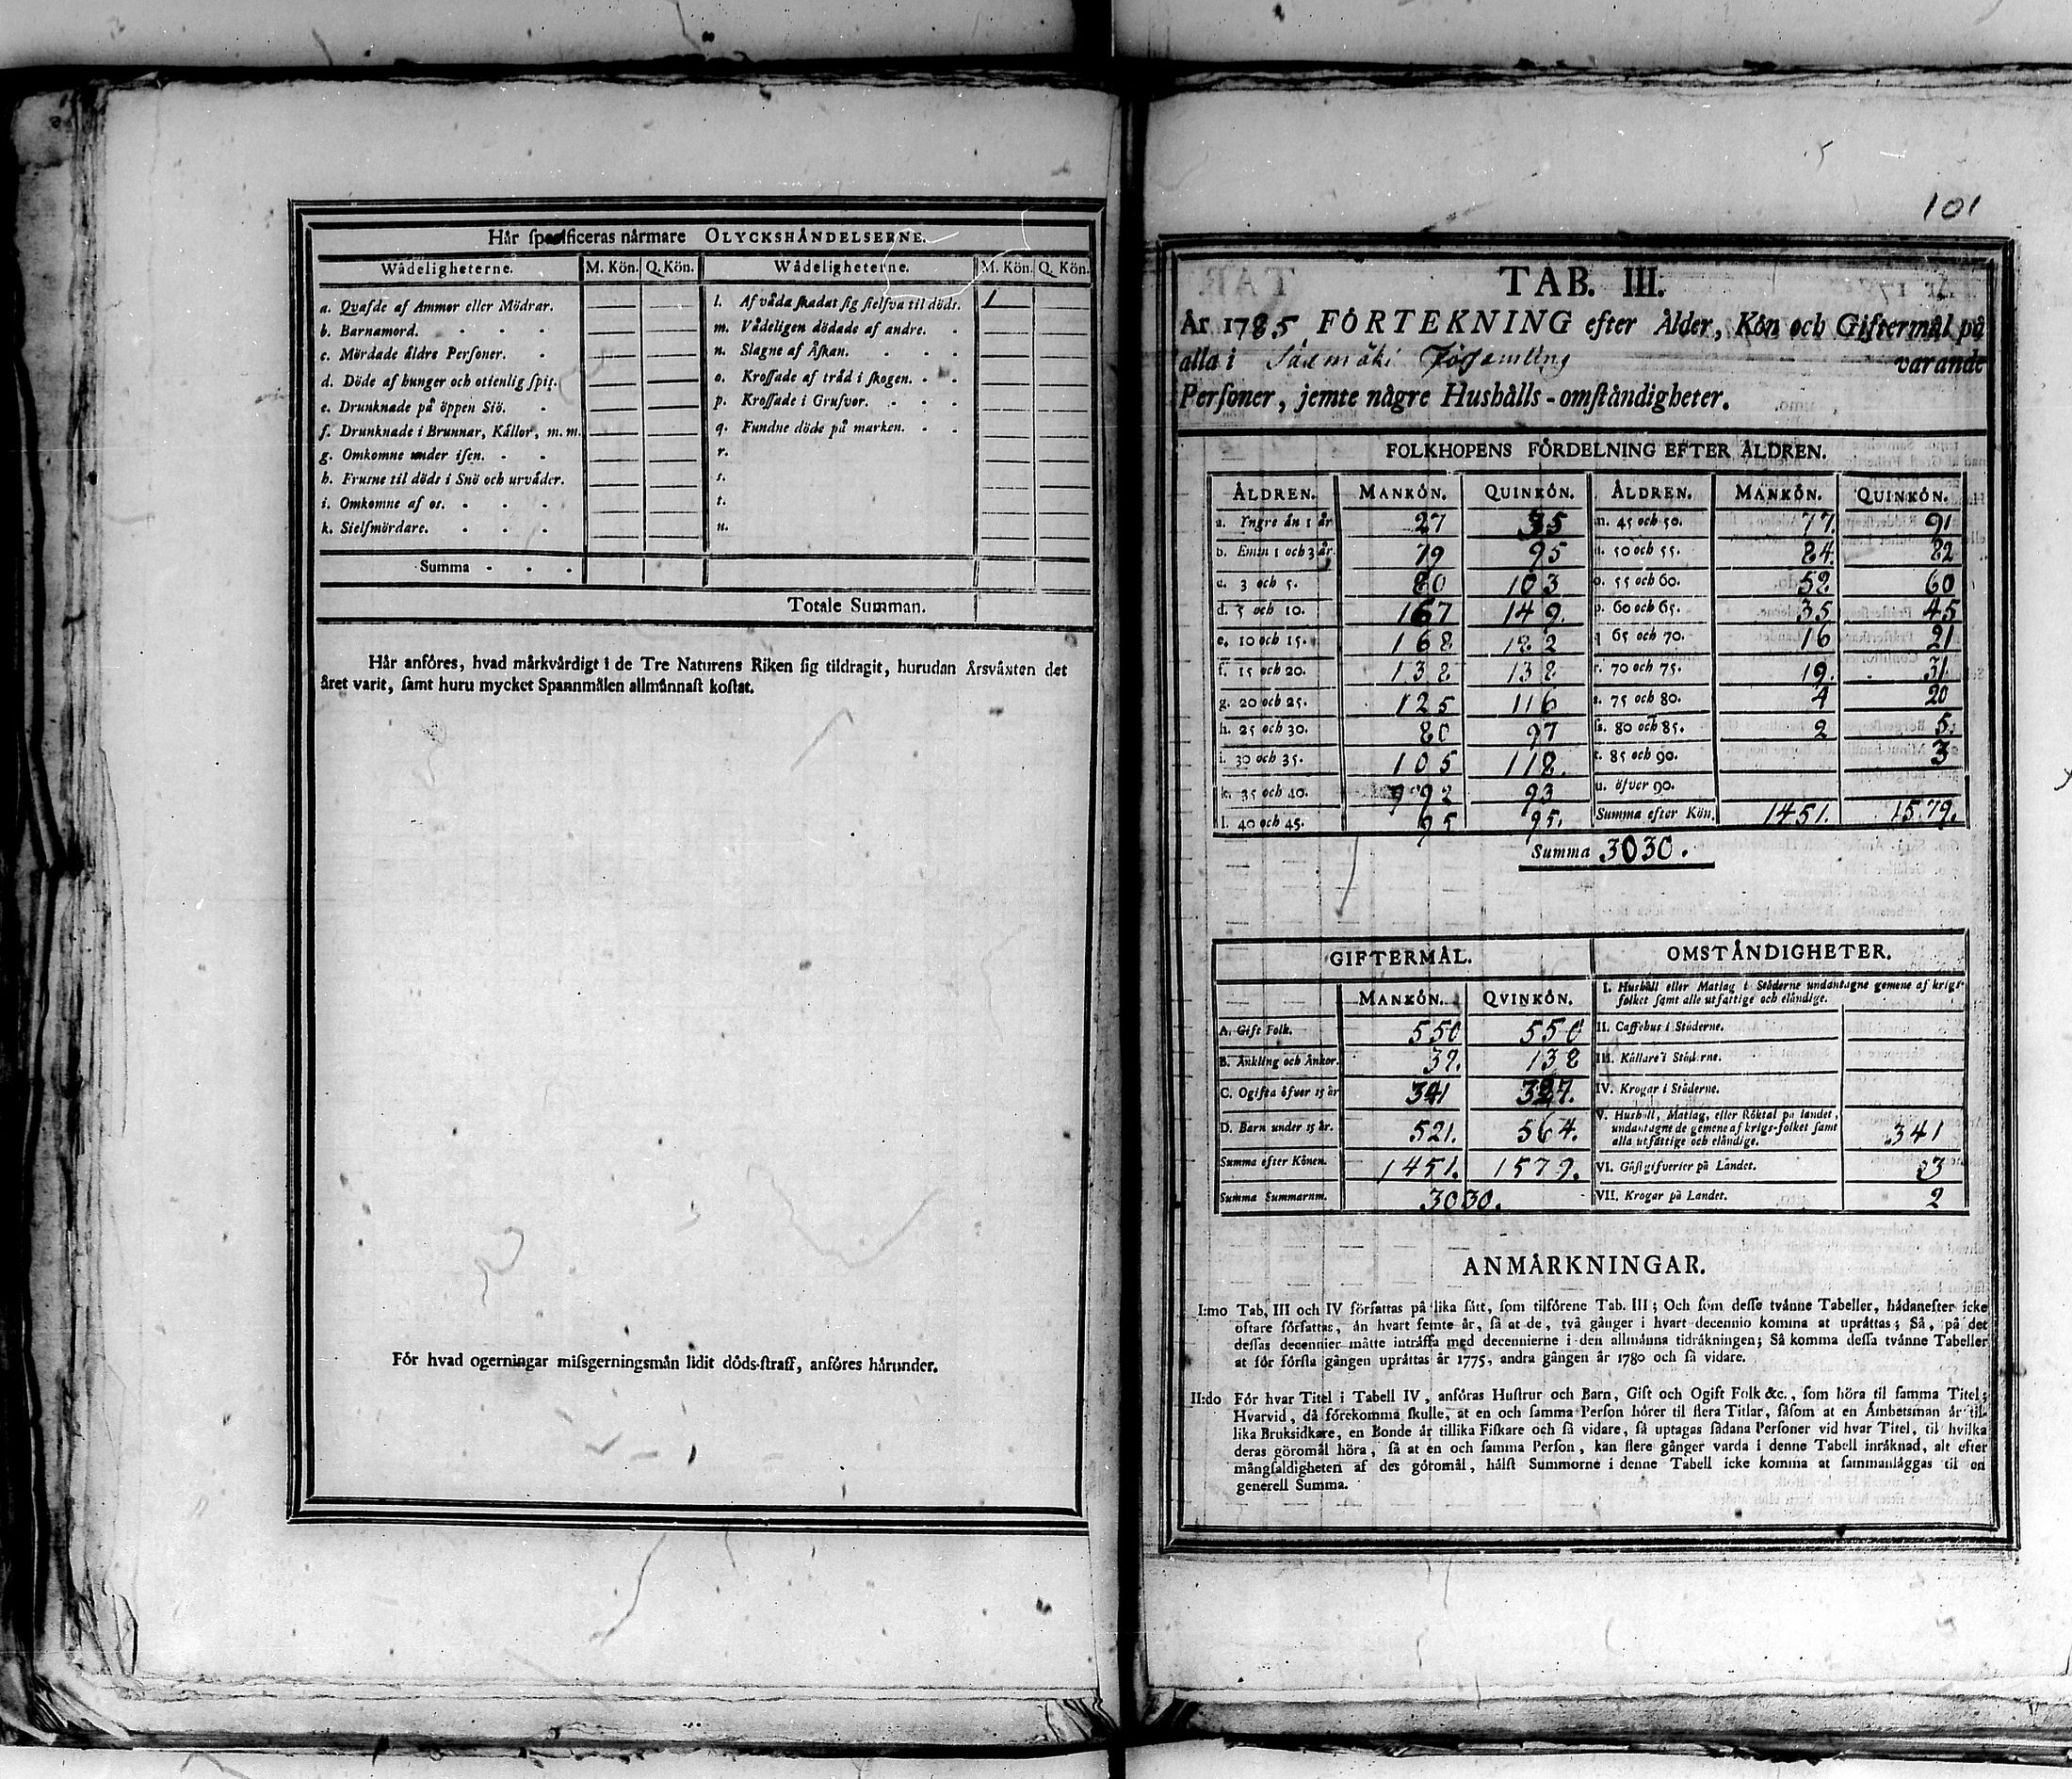 Hår specificeras nårmare OLYCKSHÅNDELSERNE.
Wådeligheterne. M. Kön. Q. Kön. Wådeligheterne. M. Kön. Q. Kön.
a. Qvafde af Ammor eller Mödrar. — — l. Af våda skadat sig sielfva til döds. 1
b. Barnamord. — — m. Vådeligen dödade af andre.
c. Mördade åldre Personer. — — n. Slagne af Åskan.
d. Döde af hunger och otienlig spis. — — o. Krossade af tråd i skogen.
e. Drunknade på öppen Siö. — — p. Krossade i Grufvor.
f. Drunknade i Brunnar, Kållor, m. m. — — q. Fundne döde på marken.
g. Omkomne under isen. — — r.
h. Frusne til döds i Snö och urvåder. — — s.
i. Omkomne af os. — — t.
k. Sielfmördare. — — u.
Summa
Totale Summan.
Hår anföres, hvad mårkvårdigt i de Tre Naturens Riken sig tildragit, hurudan Årsvåxten det
året varit, samt huru mycket Spannmålen allmånnast kostat.
För hvad ogerningar missgerningsmån lidit döds-straff, anföres hårunder.
101
TAB. III.
År 1785, FÖRTEKNING efter Ålder, Kön och Giftermål på
alla i Församling varande
Personer, jemte någre Hushålls-omståndigheter.
FOLKHOPENS FÖRDELNING EFTER ÅLDREN.
ÅLDREN. MANKÖN. QUINKÖN. ÅLDREN. MANKÖN. QUINKÖN.
a. Yngre ån 1 år 27 35 m. 45 och 50. 77. 91
b. Emin 1 och 3 år 79 95 n. 50 och 55. 84. 82
c. 3 och 5. 80 103 o. 55 och 60. 52 60
d. 5 och 10. 167 149. p. 60 och 65. 35 45
e. 10 och 15. 168 182 q. 65 och 70. 16 21
f. 15 och 20. 138 138 r. 70 och 75. 19. 31.
g. 20 och 25. 125 116 s. 75 och 80. 4 20
h. 25 och 30. 80 97 ss. 80 och 85. 2 5.
i. 30 och 35. 105 118. t. 85 och 90. 3
k. 35 och 40. 92 93 u. öfver 90.
l. 40 och 45. 95 95. Summa efter Kön. 1451. 1579.
Summa 3030.
GIFTERMÅL. OMSTÅNDIGHETER.
MANKÖN. QVINKÖN. I. Hushåll eller Matlag i Ståderne undantagne gemene af krigs-
folket samt alle utfattige och elåndige.
A. Gift Folk. 550 550 II. Caffehus i Ståderne.
B. Ånkling och Ånkor. 39. 138 III. Kållare i Ståderne.
C. Ogifta öfver 15 år 341 327. IV. Krogar i Ståderne.
D. Barn under 15 år. 521. 564. V. Hushåll, Matlag, eller Röktal på landet,
undantagne de gemene af krigs-folket samt
alla utfattige och elåndige. 341
Summa efter Könen. 1451. 1579. VI. Gåstgifverier på Landet. 3
Summa Summarum. 3030. VII. Krogar på Landet. 2
ANMÅRKNINGAR.
I:mo Tab. III och IV författas på lika sått, som tilförene Tab. III; Och som desse tvånne Tabeller, hådanefter icke
oftare författas, ån hvart femte år, så at de, två gånger i hvart decennio komma at upråttas; Så, på det
dessas decennier måtte intråffa med decennierne i den allmånna tidråkningen; Så komma dessa tvånne Tabeller
at för första gången upråttas år 1775, andra gången år 1780 och så vidare.
II:do För hvar Titel i Tabell IV, anföras Hustrur och Barn, Gift och Ogift Folk &c., som höra til samma Titel;
Hvarvid, då förekomma skulle, at en och samma Person hörer til flera Titlar, såsom at en Åmbetsman år til-
lika Bruksidkare, en Bonde år tillika Fiskare och så vidare, så uptagas sådana Personer vid hvar Titel, til hvilka
deras göromål höra, så at en och samma Person, kan flere gånger varda i denne Tabell inråknad, alt efter
mångfaldigheten af des göromål, hålst Summorne i denne Tabell icke komma at sammanlåggas til en
generell Summa.